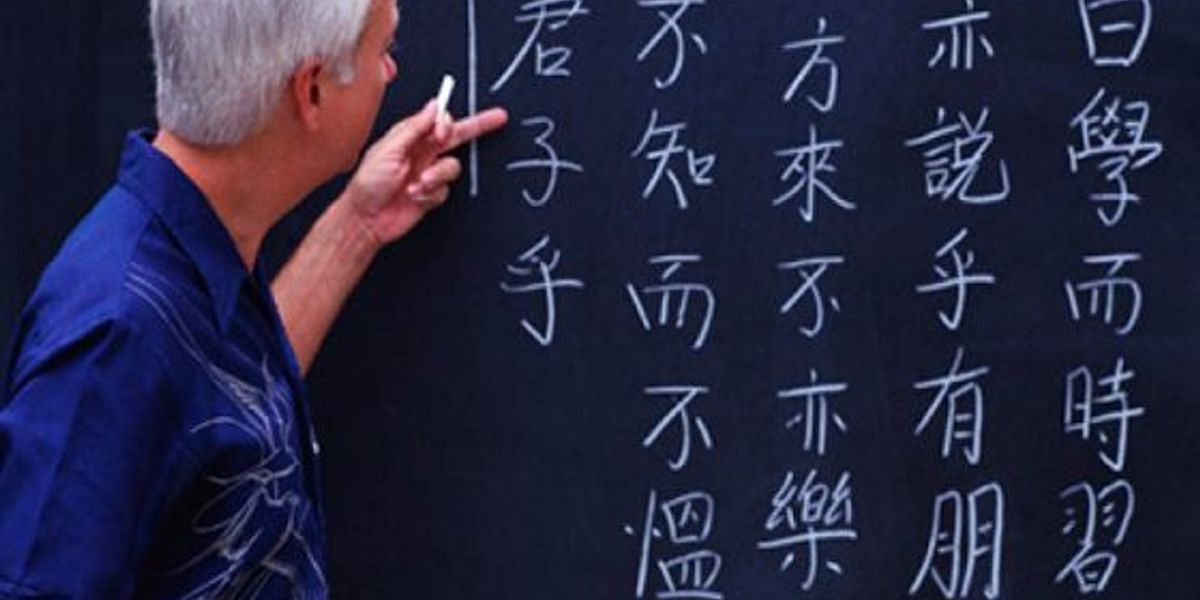 曰學而時習
亦説乎有朋
方來不亦樂
不知而不愠
君子乎